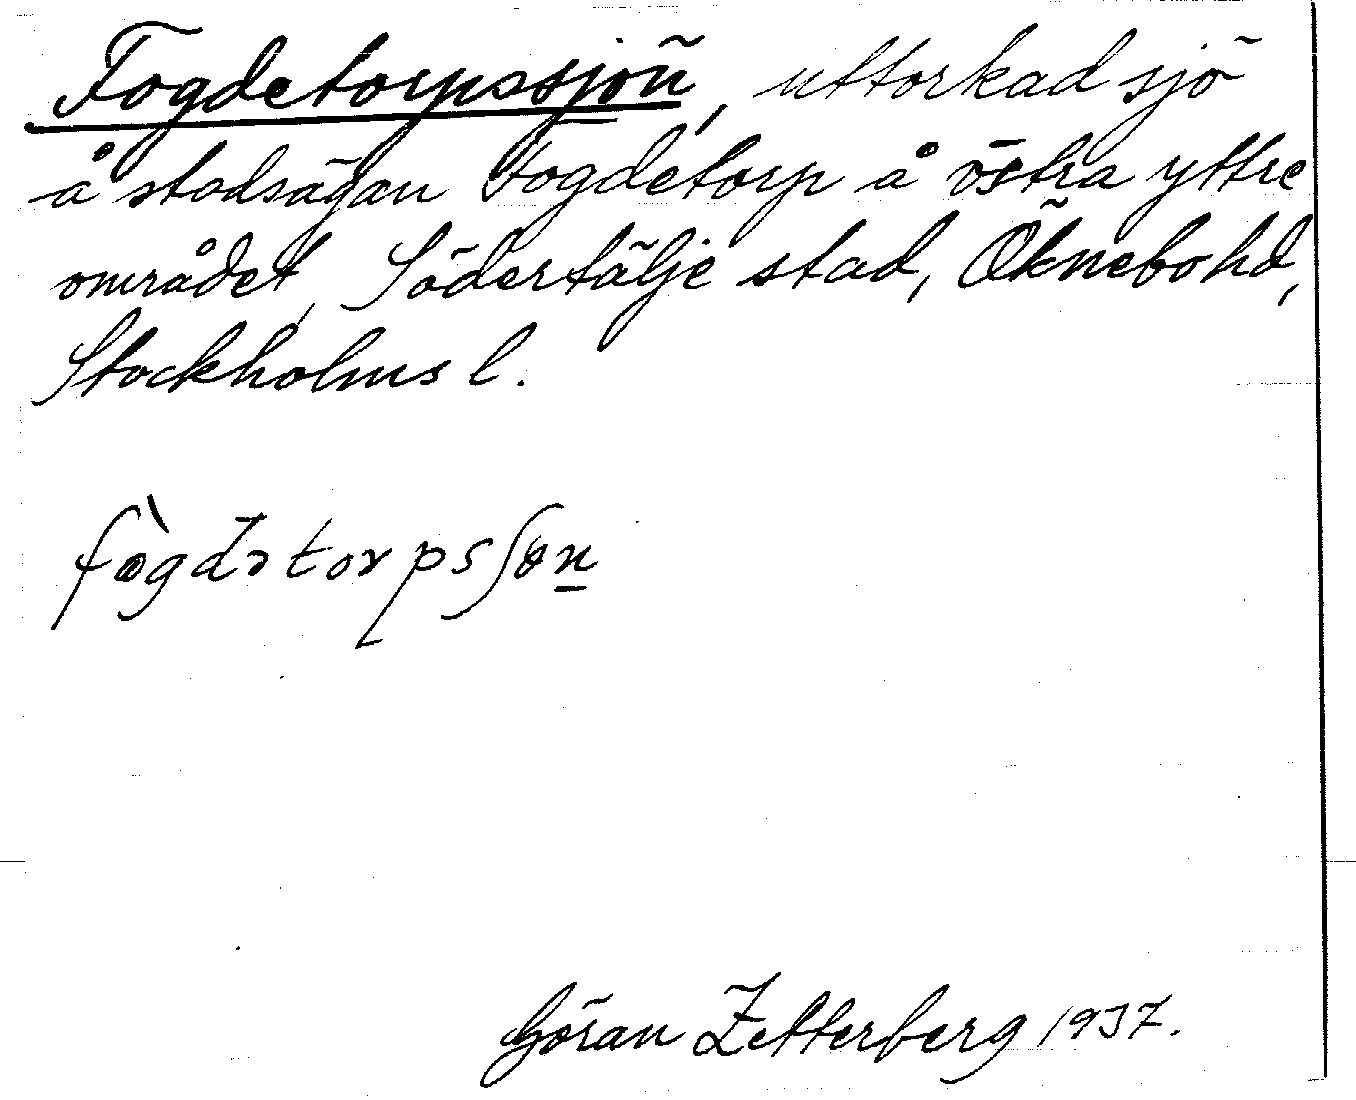 Fogdetorpssjön, uttorkad sjö
å stadsägan Fogdetorp å östra yttre
området, Södertälje stad, Öknebo hd,
Stockholms l.
fògdətorpsʃøn
Göran Zetterberg 1937.